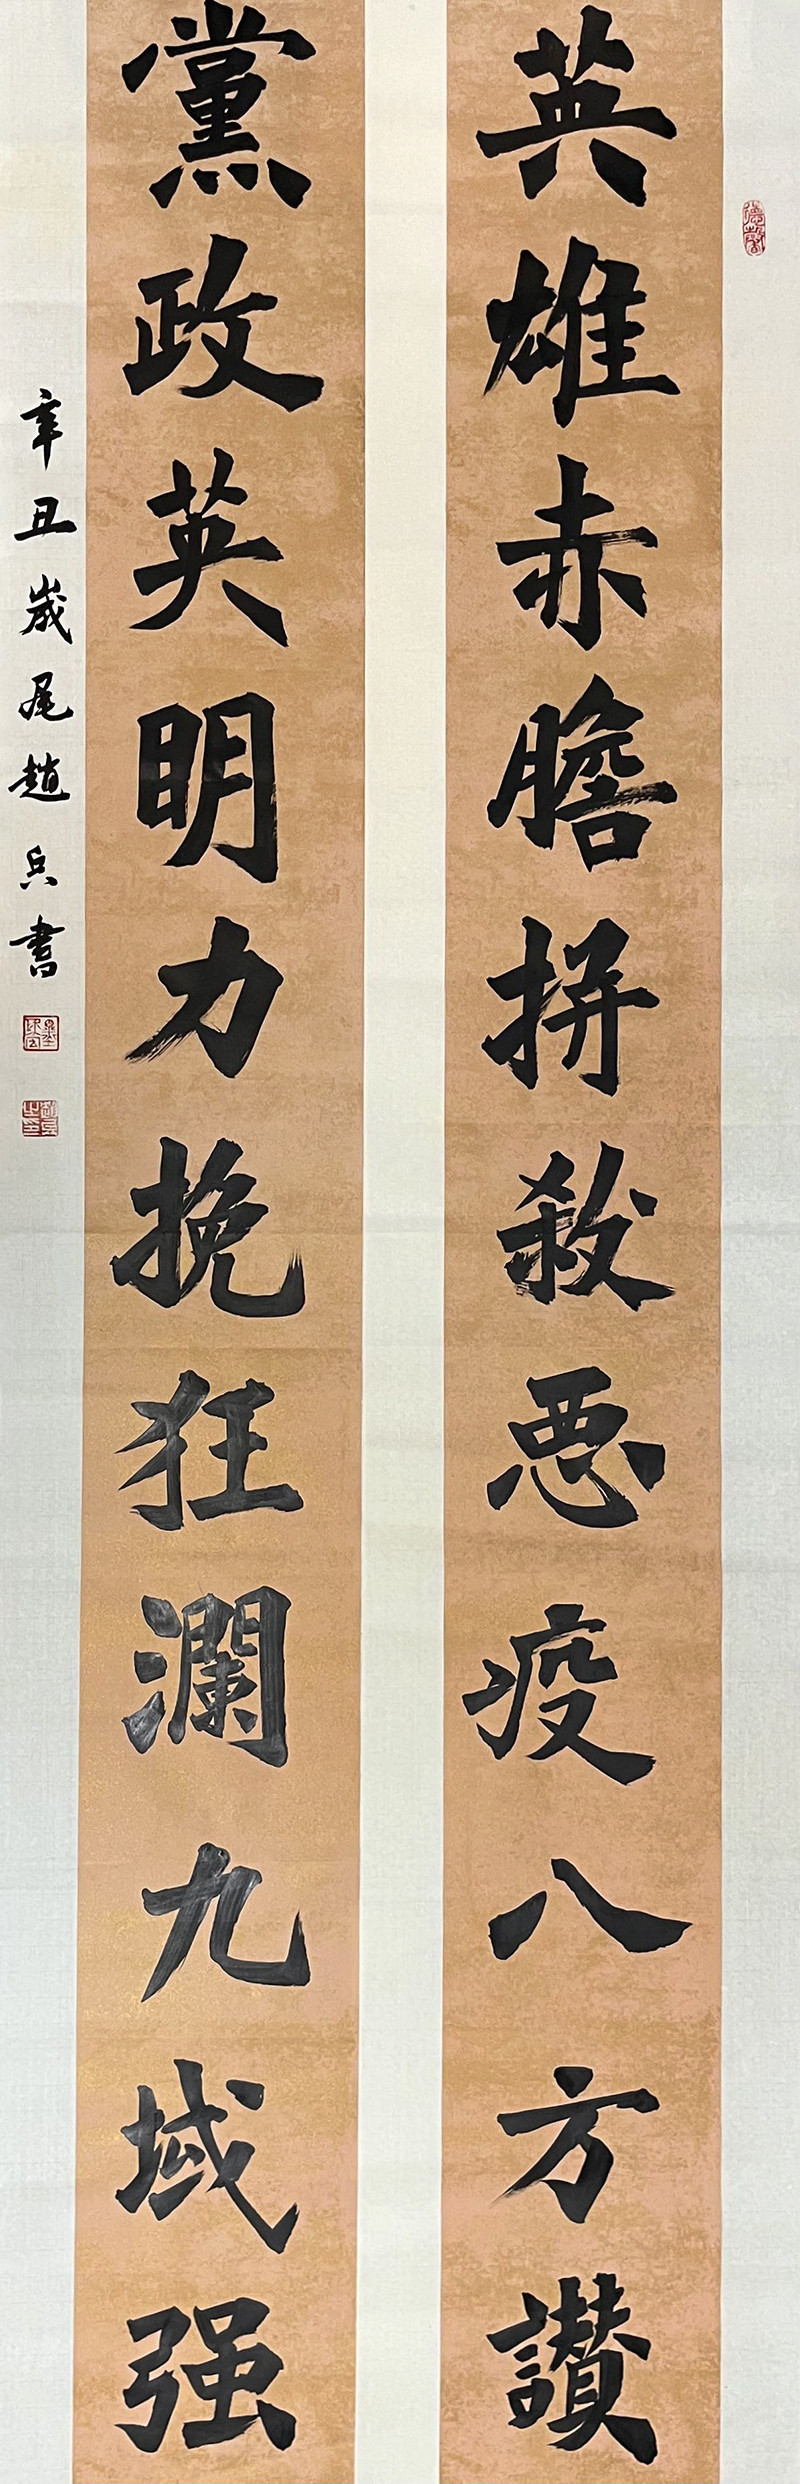 英雄赤膽拼殺惡疫八方讚
黨政英明力挽狂瀾九域强
辛丑歲尾趙兵書